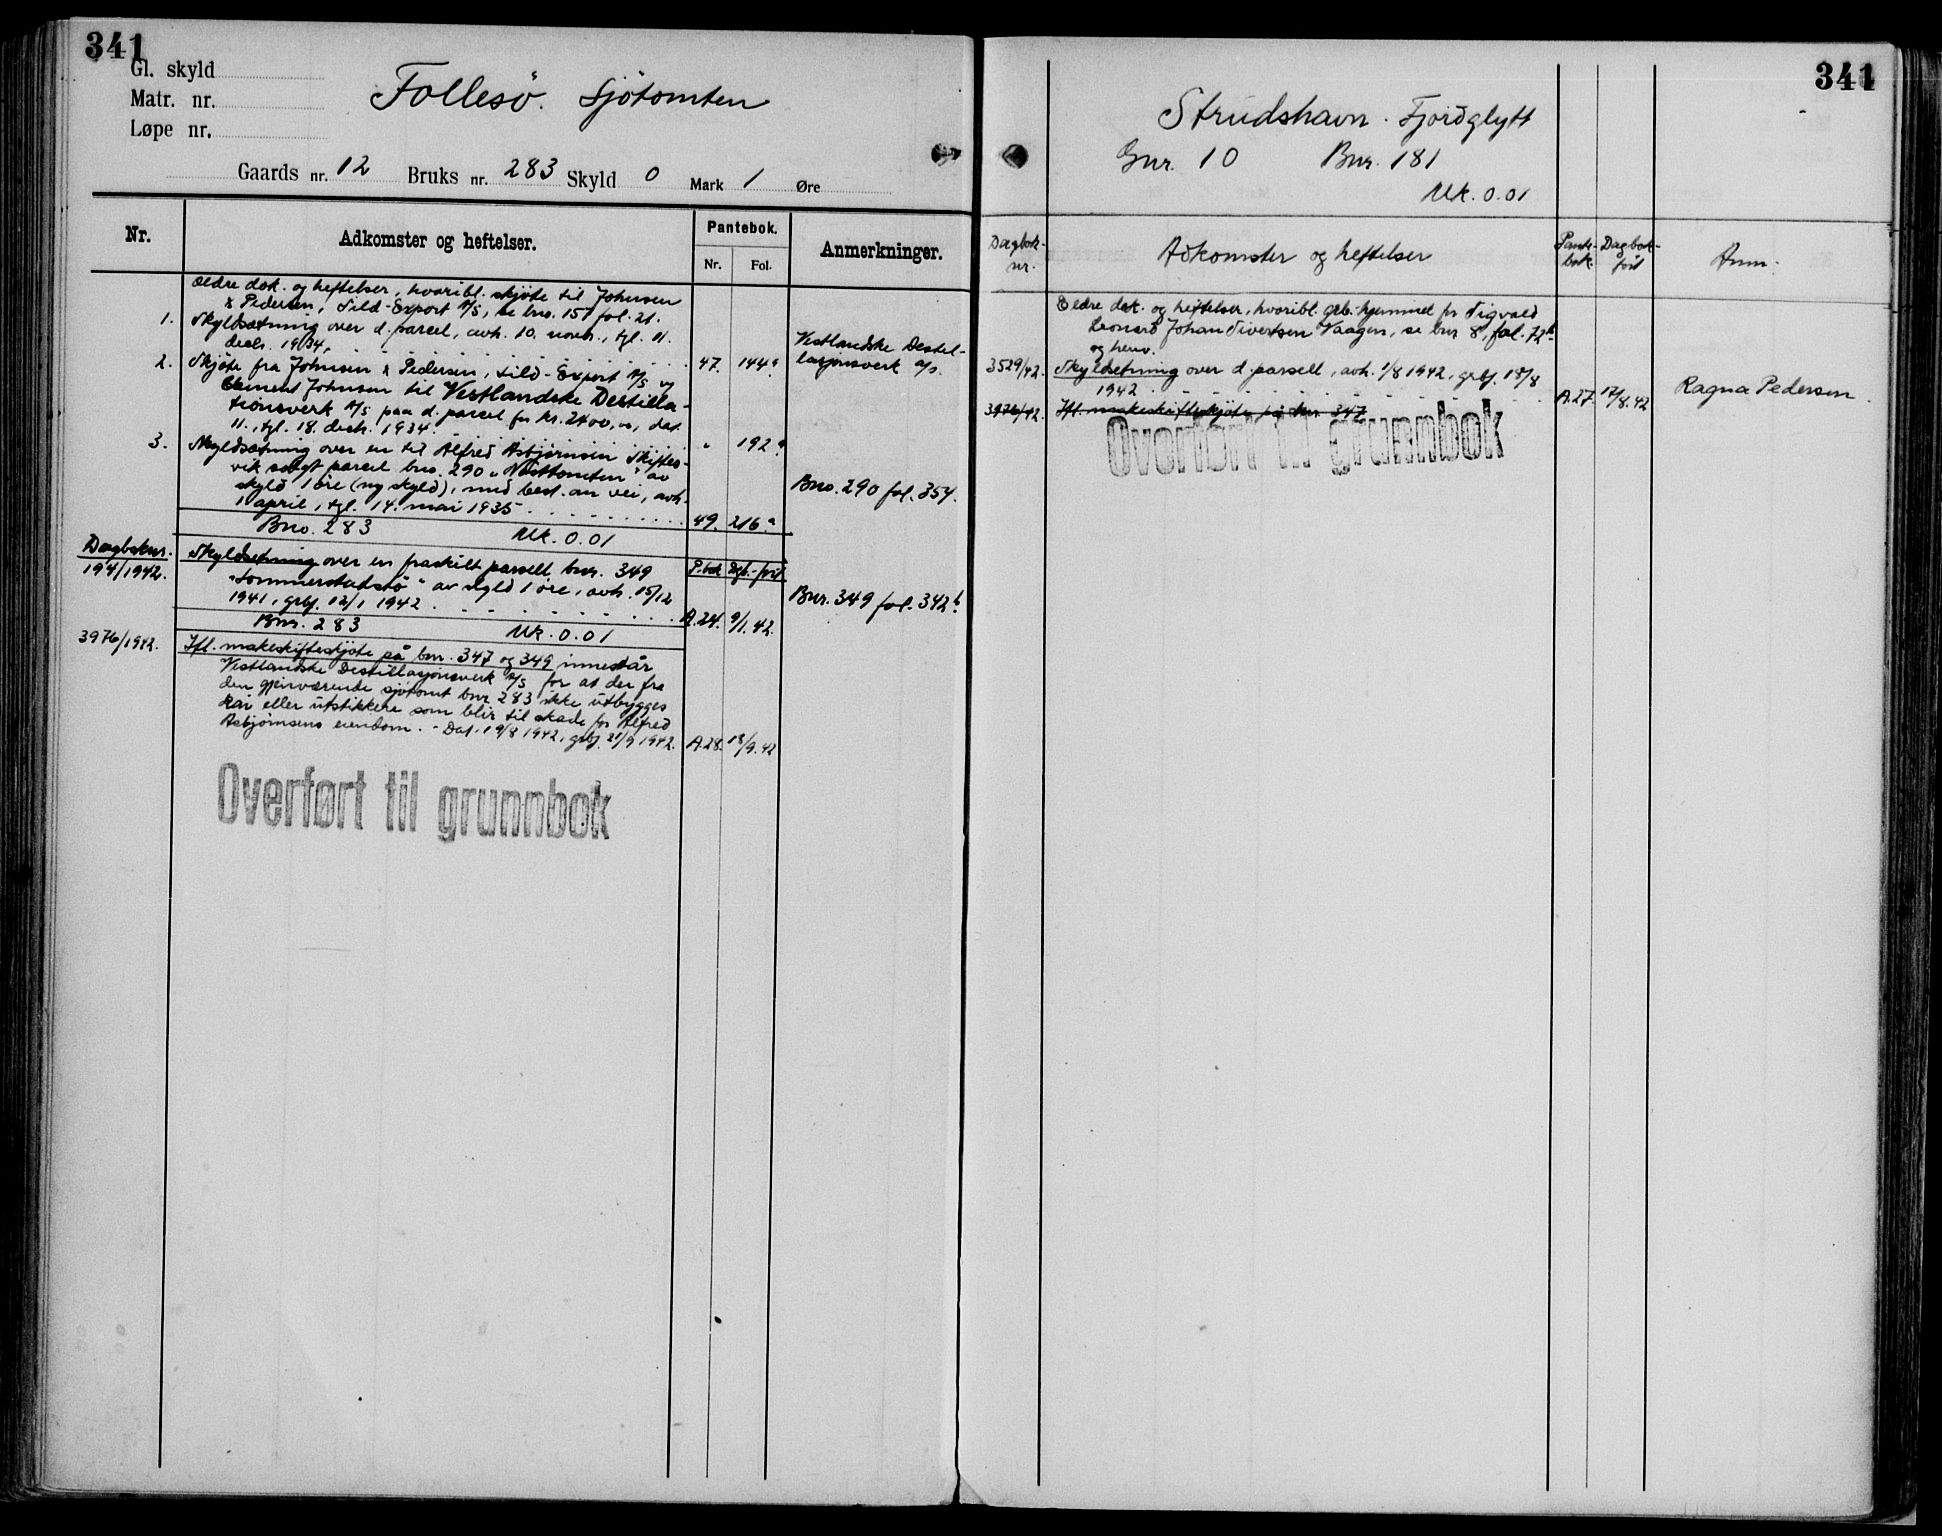 341
Gl. skyld
Matr. nr.
Løpe nr.
Follesö. Sjötomten
Gaards nr. 12 Bruks nr. 283 Skyld 0 Mark 1 Øre
Nr.
Adkomster og heftelser.
Pantebok.
Nr. Fol.
Anmerkninger.
Ældre dok. og heftelser, hvoribl. skjöte til Johnsen
& Pedersen, Sild-Export A/S, se bno. 157 fol. 21.
1. Skyldsætning over d. parcel, avh. 10. novb., tgl. 11.
decb. 1934. 47. 144a
2. Skjöte fra Johnsen & Pedersen, Sild-Export A/S og
Clement Johnsen til Vestlandske Destilla-
tionsverk A/S paa d. parcel for kr. 2400,00, dat.
11., tgl. 18. decb. 1934. " 192a
Vestlandske Destil-
lasjonsverk a/s.
3. Skyldsætning over en til Alfred Asbjørnsen Skiftes-
vik solgt parcel bno. 290 „Nösttomten" av
skyld 1 öre (ny skyld), med best. om vei, avh.
1 april, tgl. 14. mai 1935 49. 216a
Bno. 290 fol. 354.
Bno. 283 Mk. 0.01
Dagboknr. P.bok Dgb.-ført
194/1942. Skyldsetning over en fraskilt parsell bnr. 349
„Sommerstadstø" av skyld 1 öre, avh. 15/12
1941, grbf. 12/1 1942. A.24. 9/1.42.
Bnr. 349 fol. 342b.
Bnr. 283 Mk. 0.01
3976/1942. Ifl. makeskifteskjöte på bnr. 347 og 349 innestår
Vestlandske Destillasjonsverk A/S for at der fra
den gjenværende sjötomt bnr. 283 ikke utbygges
kai eller utstikkere som blir til skade for Alfred
Asbjørnsens eiendom. - Dat. 19/8 1942, grbf. 21/9 1942. A.28. 18/9.42
Overført til grunnbok
341
Strudshavn. Fjordglytt
Gnr. 10 Bnr. 181
Mk. 0.01
Dagbok-
nr.
Adkomster og heftelser
Pante-
bok.
Dagbok-
ført
Anm.
Eldre dok. og heftelser, hvoribl. grb.-hjemmel for Sigvald
Leonard Johan Sivertsen Vaagen, se bnr 8, fol. 72b
og henv.
3529/42. Skyldsetning over d. parsell, avh. 1/8 1942, grbf. 18/8
1942 A.27. 17/8.42
Ragna Pedersen.
3976/42. Ifl. makeskifteskjöte på bnr. 347
Overført til grunnbok